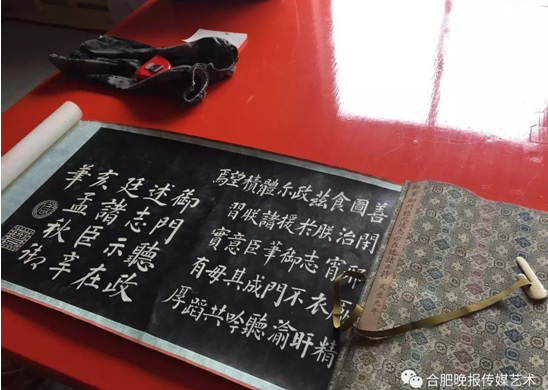 善閑精
圖治宵衣旰
食朕志不渝
茲於御門聽
政援筆成吟
尒諸臣其共
體朕意毋蹈
積習實有厚
望焉
御門聽政
述志示在
廷諸臣辛
亥孟秋御
筆
合肥晚报传媒艺术